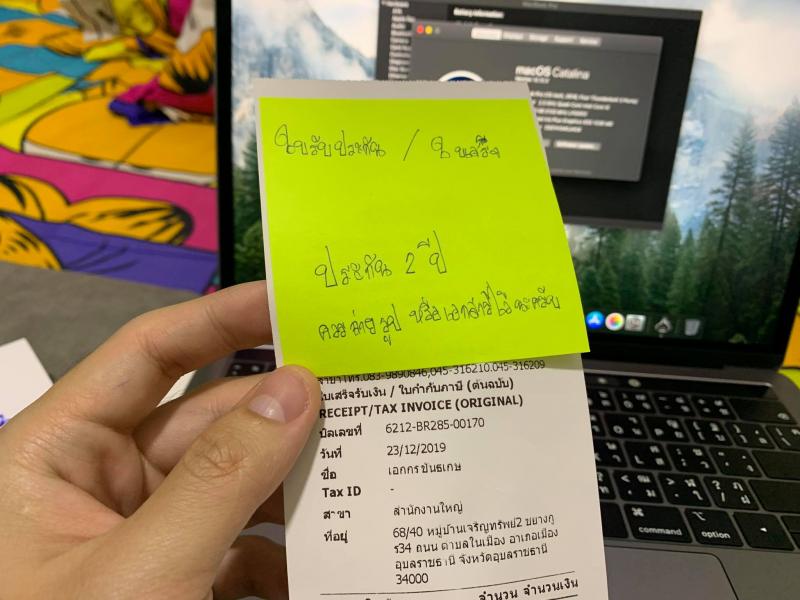 Battery Information
macOS Catalina
ใบรับประกัน / ใบเสร็จ
ประกัน 2 ปี
ควรถ่ายรูป หรือเอกสารนี้ไว้นะครับ
สาขา โทร.083-9890846,045-316210,045-316209
ใบเสร็จรับเงิน / ใบกำกับภาษี (ต้นฉบับ)
RECEIPT/TAX INVOICE (ORIGINAL)
บิลเลขที่ 6212-BR285-00170
วันที่ 23/12/2019
ชื่อ เอกกร ขันธเกษ
Tax ID -
สาขา สำนักงานใหญ่
ที่อยู่ 68/40 หมู่บ้านเจริญทรัพย์2 ชยางกู
ร34 ถนน ตำบลในเมือง อำเภอเมือง
อุบลราชธานี จังหวัดอุบลราชธานี
34000
จำนวน จำนวนเงิน
command
option